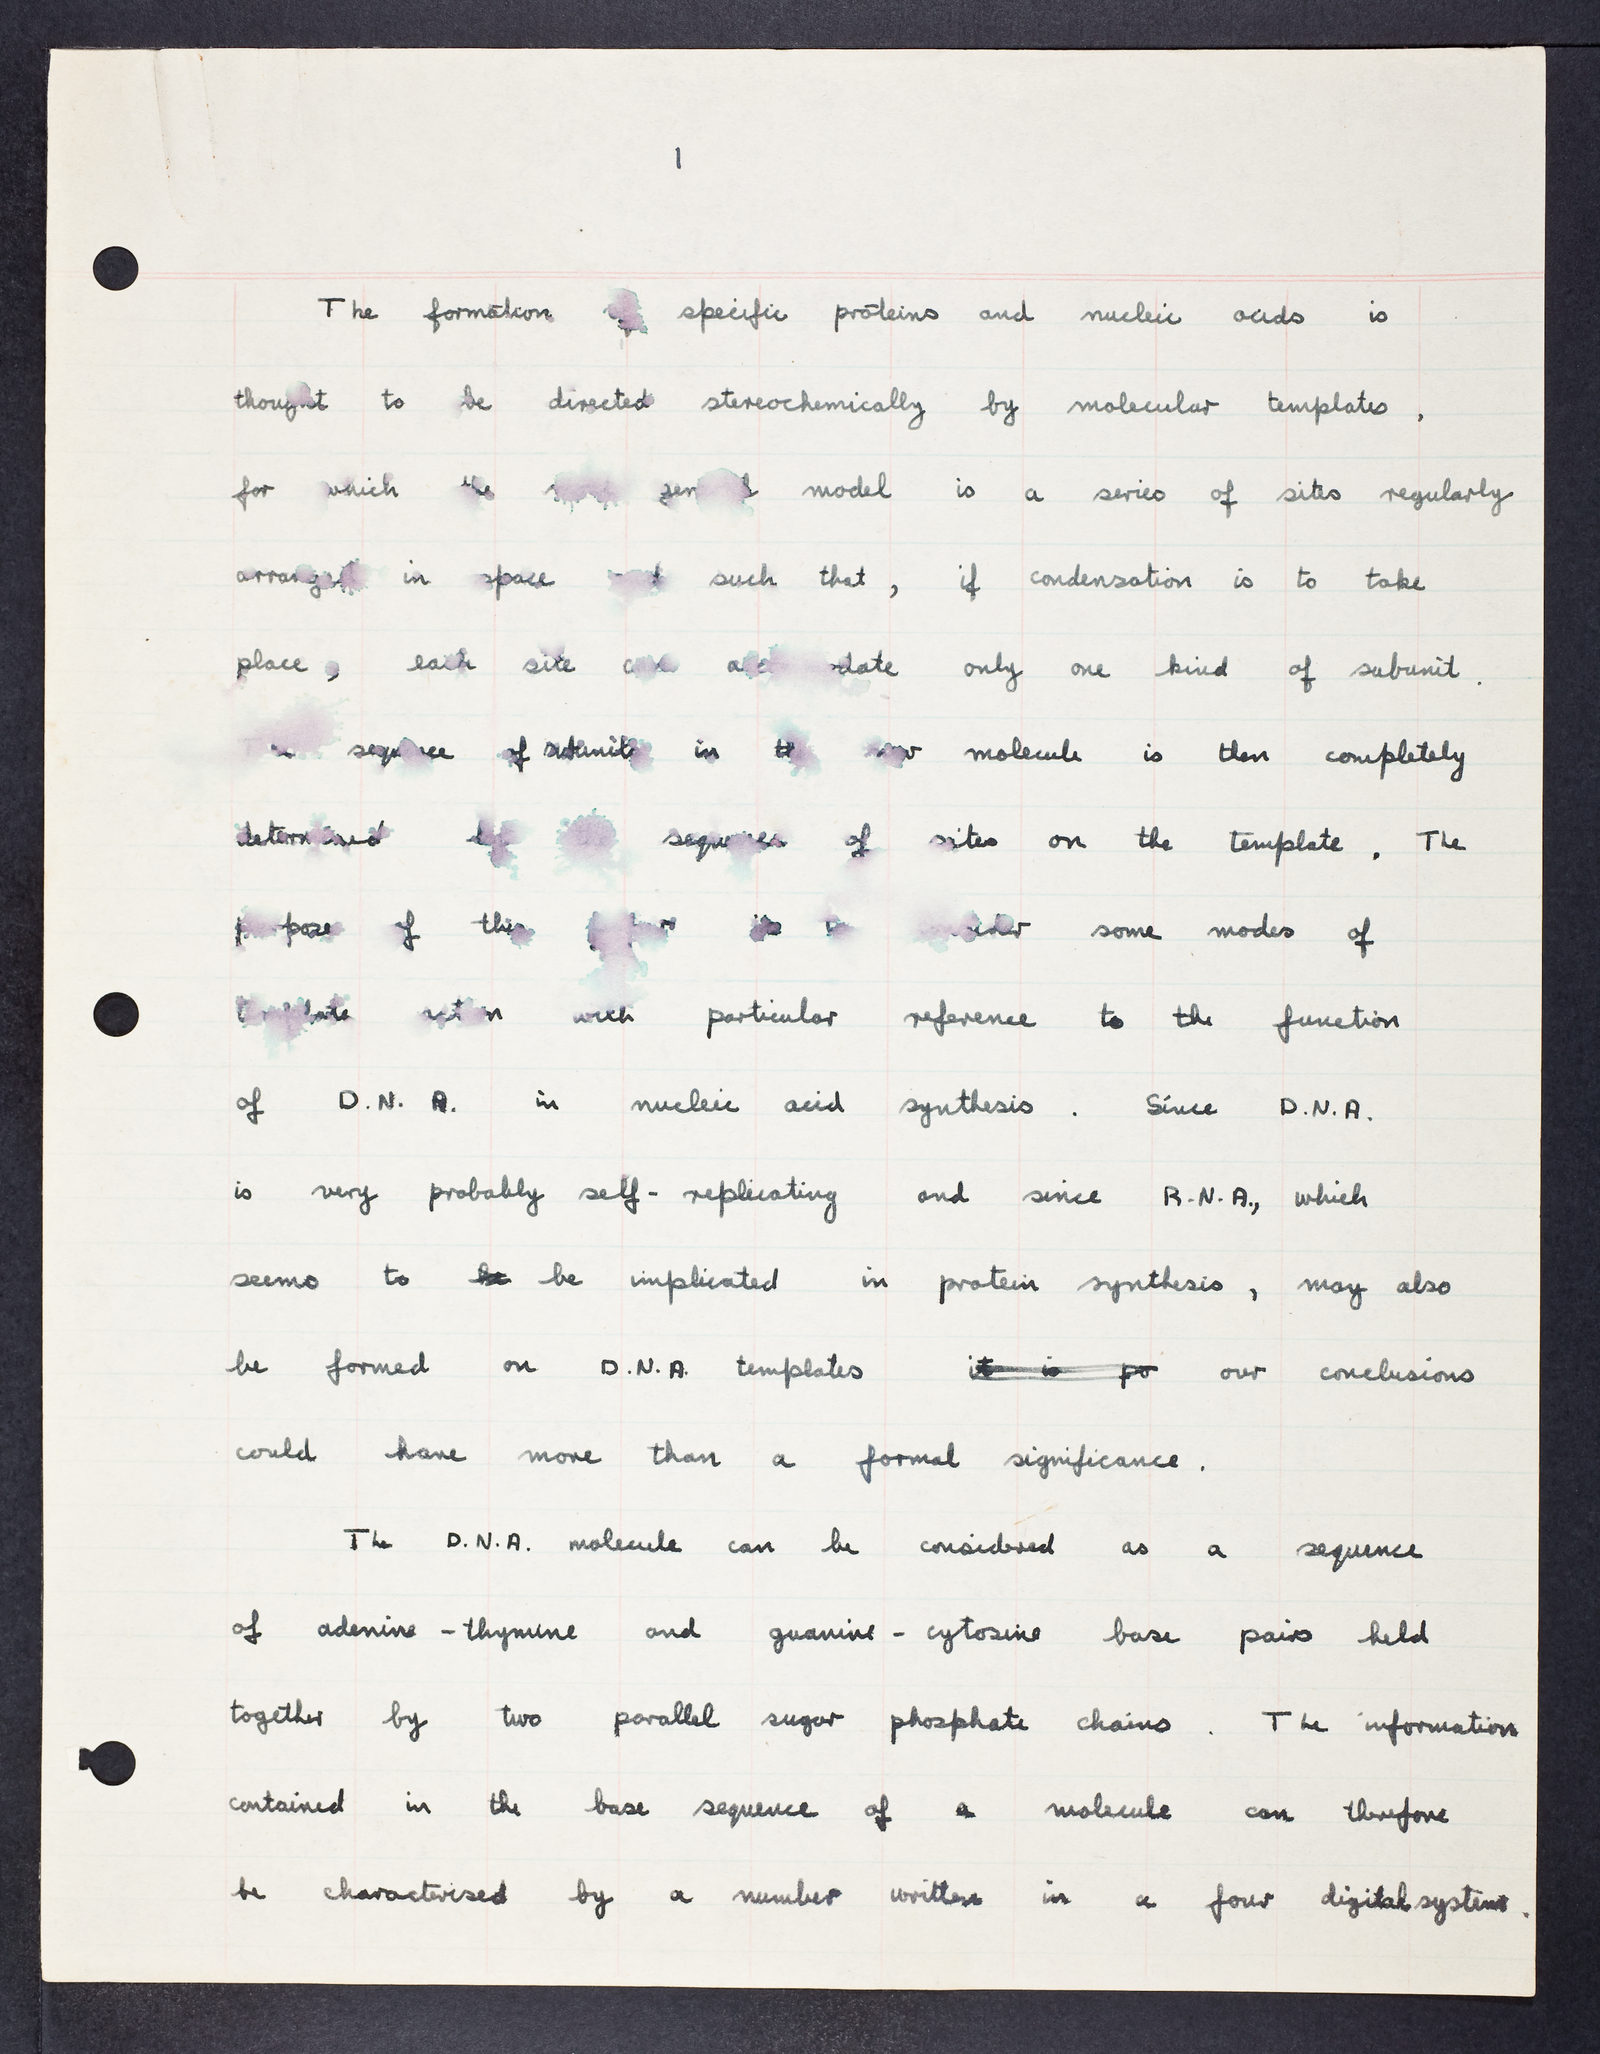 1
The formation specific proteins and nucleic acids is
thought to be directed stereochemically by molecular templates,
for which the general model is a series of sites regularly
arranged in space and such that, if condensation is to take
place, each site can accommodate only one kind of subunit.
The sequence of subunits in the new molecule is then completely
determined by sequence of sites on the template. The
purpose of this is to consider some modes of
template action with particular reference to the function
of D.N.A. in nucleic acid synthesis. Since D.N.A.
is very probably self-replicating and since R.N.A., which
seems to be be implicated in protein synthesis, may also
be formed on D.N.A. templates it is po our conclusions
could have more than a formal significance.
The D.N.A. molecule can be considered as a sequence
of adenine-thymine and guanine-cytosine base pairs held
together by two parallel sugar phosphate chains. The information
contained in the base sequence of a molecule can therefore
be characterised by a number written in a four digital system.